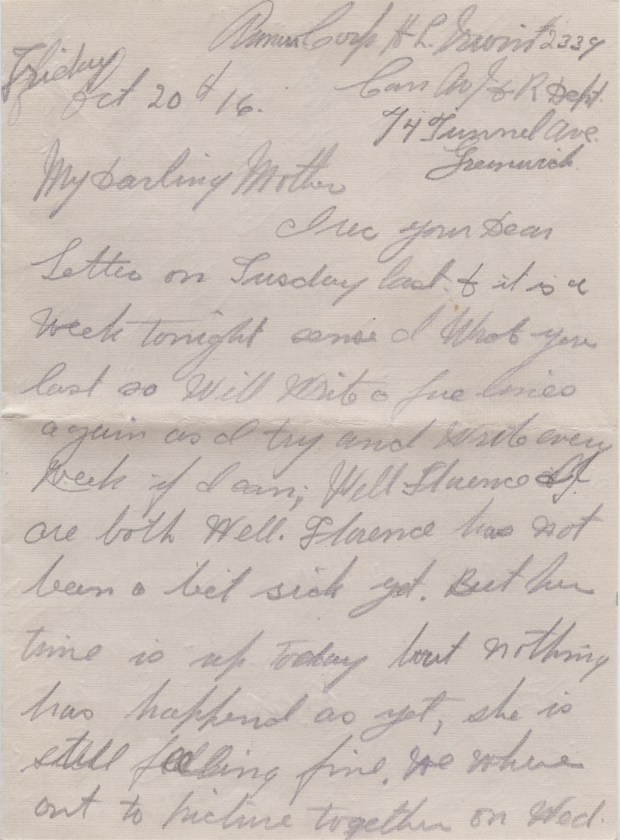 Corp H L Irwin # 2339
Friday
Can A & R Dept.
Oct 20th 16.
74 Tunnel Ave.
Greenwich
My Darling Mother
I rec your Dear
Letter on Tusday last & it is a
Week tonight sense I Wrot you
last so Will Write a fue lines
again as I try and Write every
Week if I can; Well Florence & I
are both Well. Florence has not
been a bit sick yet. But her
time is up today but nothing
has happend as yet, she is
still feeling fine. We Where
out to picture together on Wed.